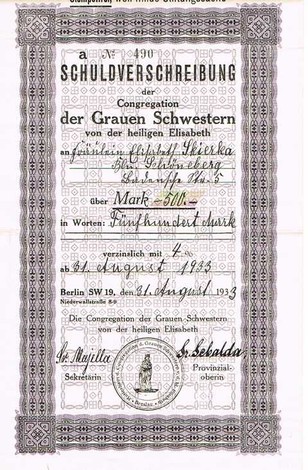 Stempelfrei, weil milde Stiftungssache
a № 490
SCHULDVERSCHREIBUNG
der
Congregation
der Grauen Schwestern
von der heiligen Elisabeth
an Fräulein Elisabeth Skierka
Bln. Schöneberg
Badensche Str. 5
über Mark -500.-
in Worten: Fünfhundert Mark
verzinslich mit 4%
ab 31. August 1933
Berlin SW 19, den 31. August 1933
Niederwallstraße 8-9
Die Congregation der Grauen Schwestern
von der heiligen Elisabeth
Sr. Majella Sr. Gebalda,
Sekretärin Provinzial-
oberin
Breslau